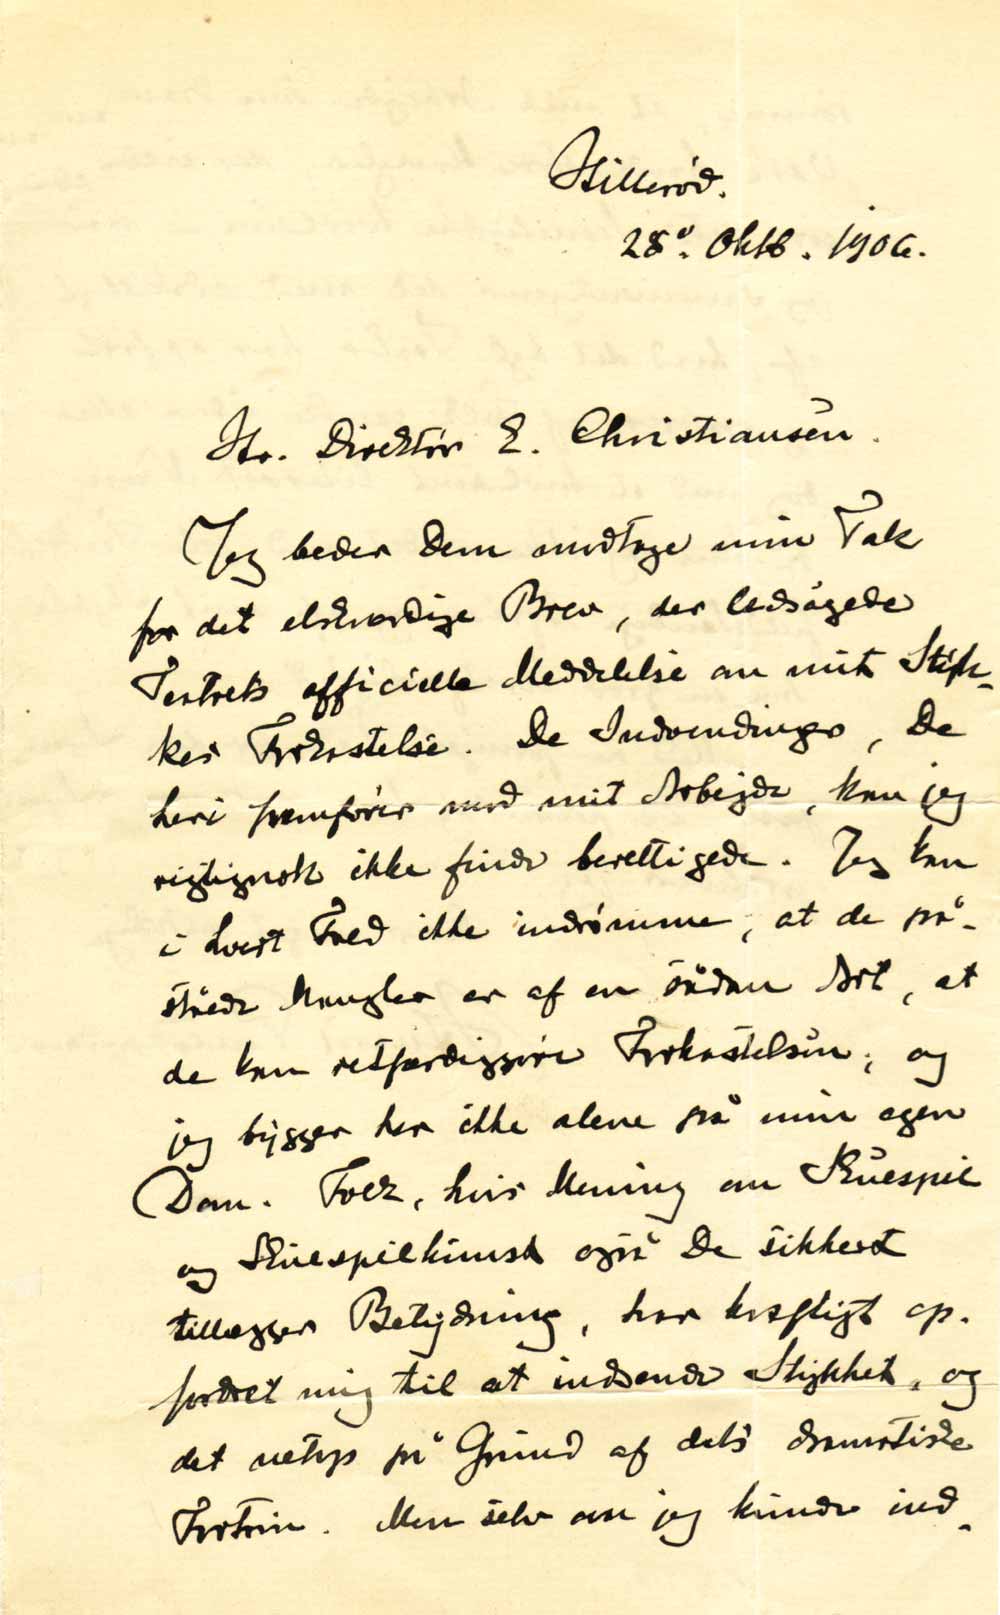 Hillerød.
28º. Oktb. 1906.
Hr. Direktør E. Christiansen.
Jeg beder Dem modtage min Tak
for det elskværdige Brev, der ledsagede
Teatrets officielle Meddelelse om mit Styk-
kes Forkastelse. De Indvendinger, De
heri fremfører mod mit Arbejde, kan jeg
rigtignok ikke finde berettigede. Jeg kan
i hvert Fald ikke indrømme, at de på-
ståede Mangler er af en sådan Art, at
de kan retfærdiggøre Forkastelsen, og
jeg bygger her ikke alene på min egen
Dom. Folk, hvis Mening om Skuespil
og Skuespilkunst også De sikkert
tillægger Betydning, har kraftigt op-
fordret mig til at indsende Stykket, og
det netop på Grund af dets dramatiske
Fortrin. Men selv om jeg kunde ind-